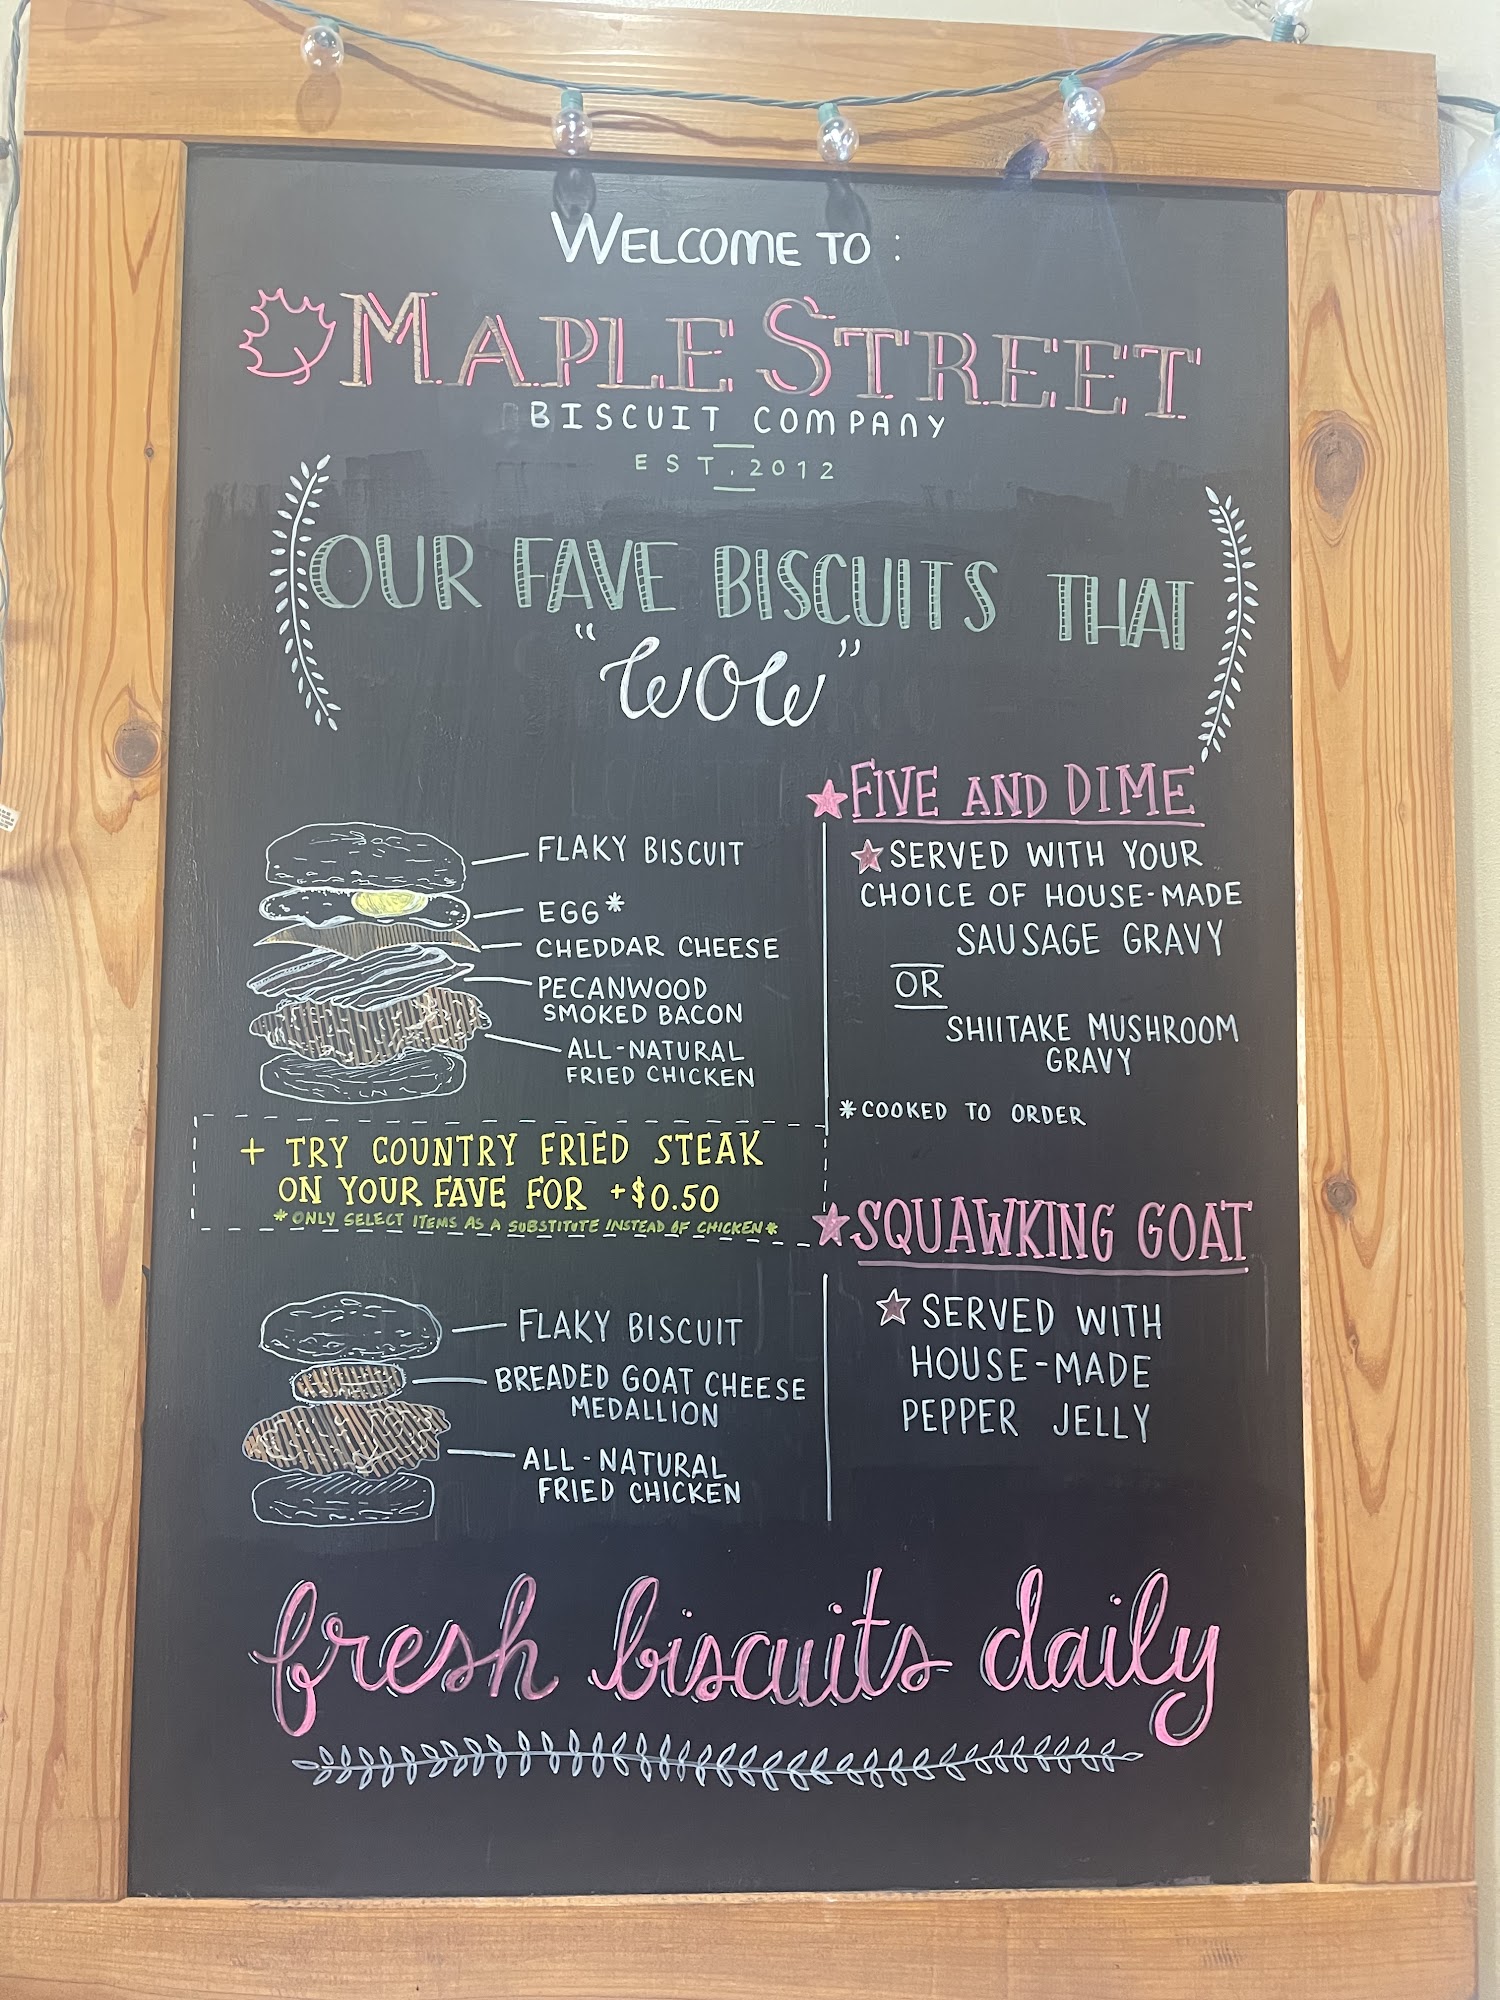 WELCOME TO :
MAPLE STREET
BISCUIT COMPANY
EST. 2012
OUR FAVE BISCUITS THAT
"WOW"
★ FIVE AND DIME
FLAKY BISCUIT
EGG*
CHEDDAR CHEESE
PECANWOOD
SMOKED BACON
ALL-NATURAL
FRIED CHICKEN
★ SERVED WITH YOUR
CHOICE OF HOUSE-MADE
SAUSAGE GRAVY
OR
SHIITAKE MUSHROOM
GRAVY
*COOKED TO ORDER
+ TRY COUNTRY FRIED STEAK
ON YOUR FAVE FOR +$0.50
*ONLY SELECT ITEMS AS A SUBSTITUTE INSTEAD OF CHICKEN*
★ SQUAWKING GOAT
FLAKY BISCUIT
BREADED GOAT CHEESE
MEDALLION
ALL-NATURAL
FRIED CHICKEN
★ SERVED WITH
HOUSE-MADE
PEPPER JELLY
fresh biscuits daily